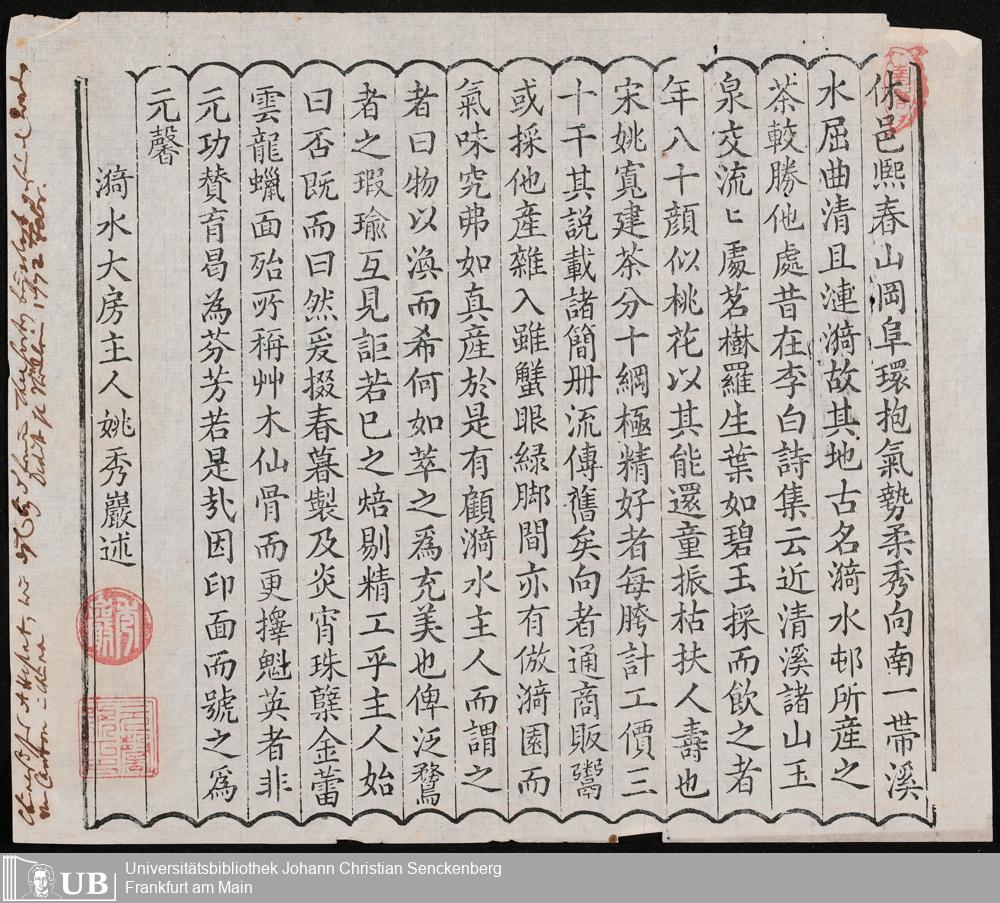 休邑熙春山岡阜環抱氣勢柔秀向南一帶溪
水屈曲清且漣漪故其地古名漪水邨所産之
茶較勝他處昔在李白詩集云近清溪諸山玉
泉交流ヒ處茗樹羅生葉如碧玉採而飲之者
年八十顔似桃花以其能還童振枯扶人壽也
宋姚寬建茶分十綱極精好者每胯計工價三
十千其説載諸簡册流傳舊矣向者通商販鬻
或採他産雜入雖蟹眼緑脚間亦有倣漪園而
氣味究弗如真産於是有顧漪水主人而謂之
者曰物以渙而希何如萃之爲充美也俾泛鶩
者之瑕瑜互見詎若巳之焙剔精工乎主人始
曰否既而曰然爰掇春暮製及炎宵珠蘖金蕾
雲龍蠟面殆所稱艸木仙骨而更擇魁英者非
元功賛育曷為芬芳若是㢤因印面而號之爲
元馨
漪水大房主人姚秀巖述
Universitätsbibliothek Johann Christian Senckenberg
Frankfurt am Main
UB